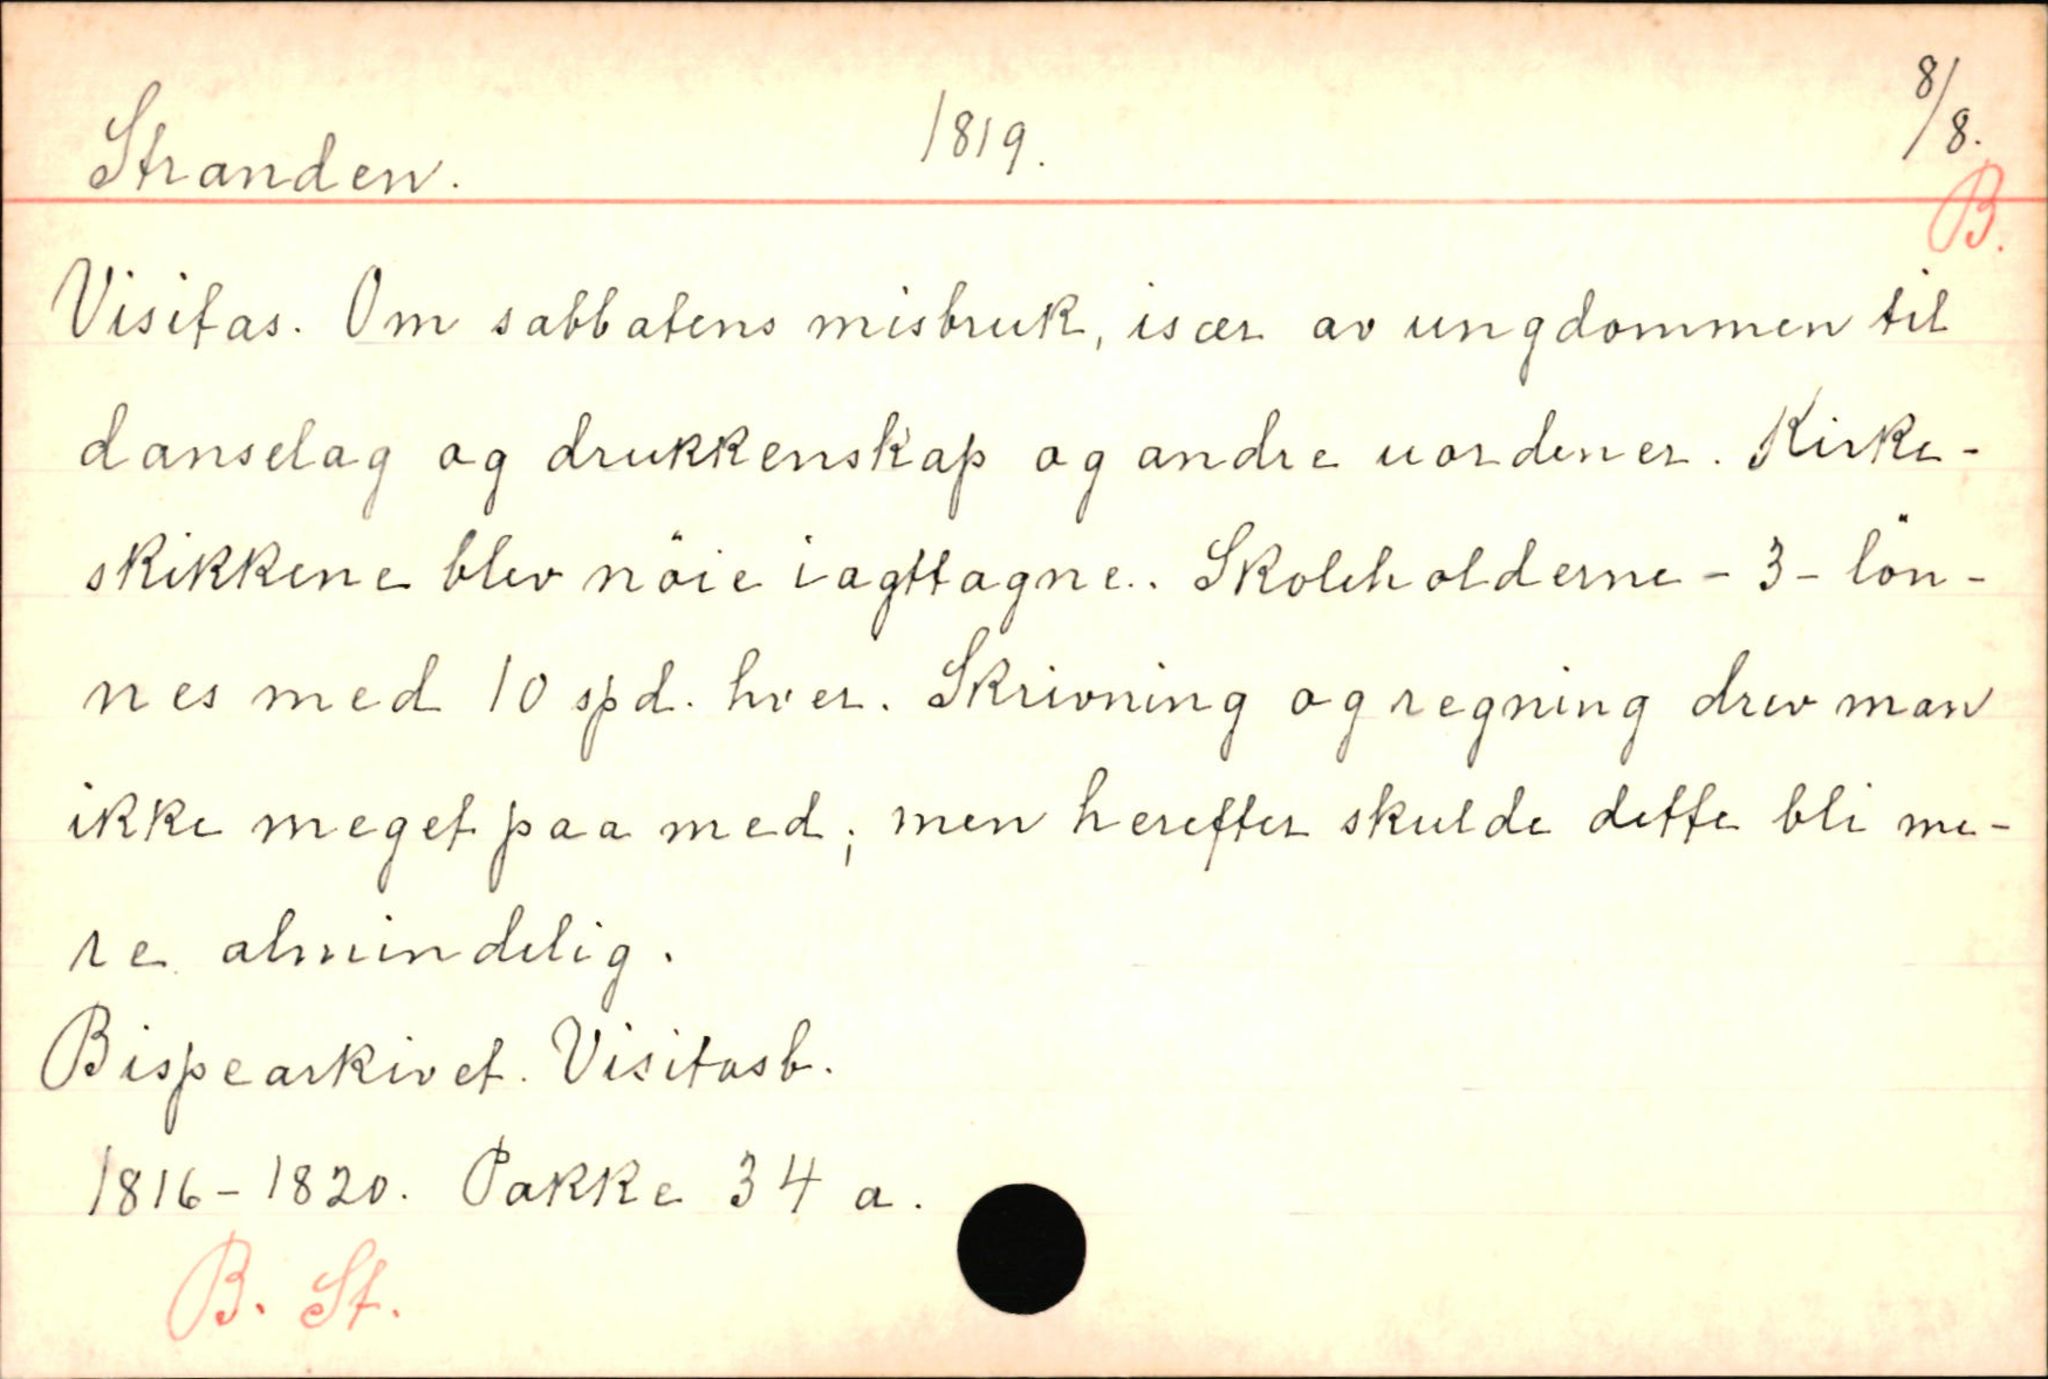 Stranden. 1819. 8/8.
B.
Visitas. Om sabbatens misbruk, især av ungdommen til
danselag og drukkenskap og andre uordener. Kirke-
skikkene blev nöie iagttagne. Skoleholderne - 3 - lön-
nes med 10 spd. hver. Skrivning og regning drev man
ikke meget paa med; men herefter skulde dette bli me-
re almindelig.
Bispearkivet. Visitasb.
1816-1820. Pakke 34 a.
B. St.